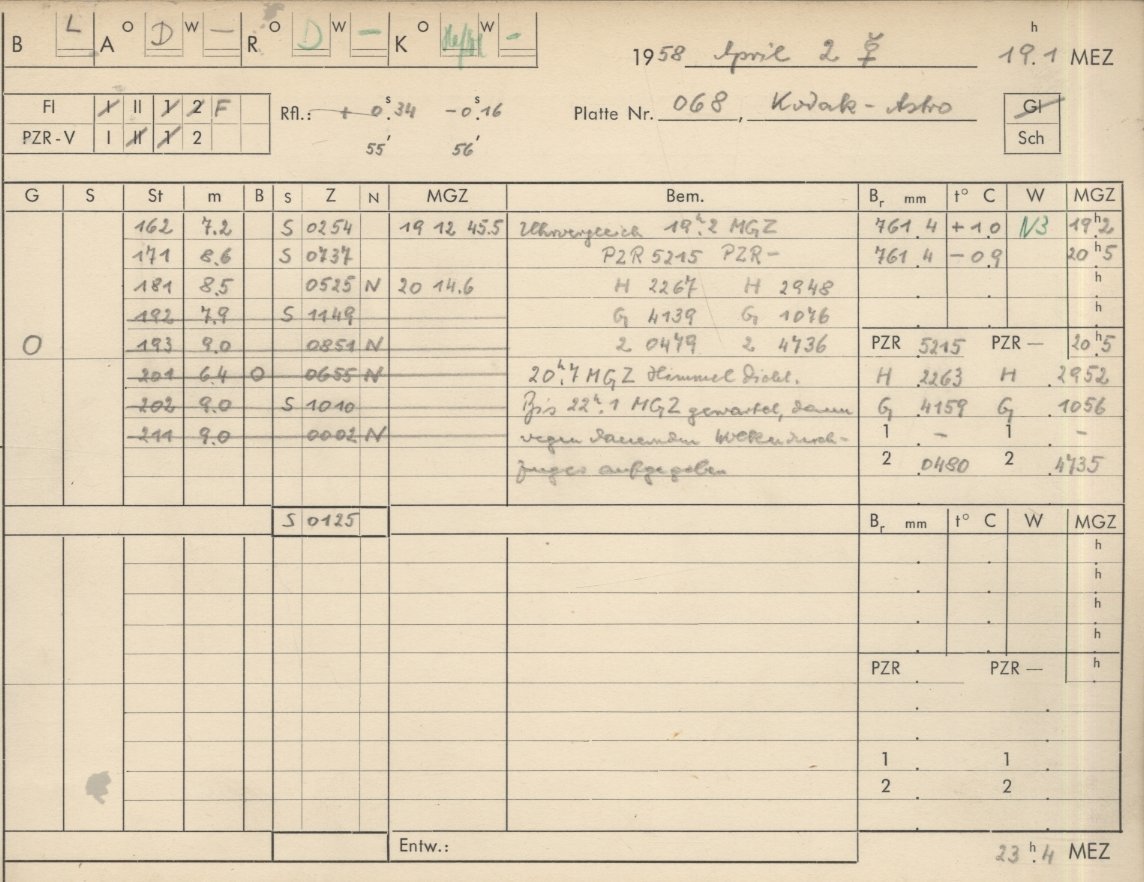 B L A O D W – R O D W – K O W - 1958 April 2 ☿ 19.1 h MEZ
Fl I II 1 2 F Rfl.: + 0.s34 −0.s16 Platte Nr. 068, Kodak-Astro Gl
PZR-V I II 1 2 55' 56' Sch
G S St m B S Z N MGZ Bem. Br mm t° C W MGZ
162 7.2 S 0254 19 12 45.5 Uhrvergleich 19h.2 MGZ 761.4 +1.0 N3 19h.2
171 8.6 S 0737 PZR 5215 PZR- 761.4 −0.9 20h.5
181 8.5 0525 N 20 14.6 H 2267 H 2948 h
192 7.9 S 1149 G 4139 G 1076 h
O 193 9.0 0851 N 2 0479 2 4736 PZR 5215 PZR — 20h.5
201 6.4 O 0655 N 20h.7 MGZ Himmel dicht. H .2263 H .2952
202 9.0 S 1010 Bis 22h.1 MGZ gewartet, dann G .4159 G .1056
211 9.0 0002 N wegen dauernden Wolkendurch- 1 - 1 -
zuges aufgegeben 2 .0480 2 .4735
S 0125 Br mm t° C W MGZ
h
h
h
h
PZR PZR — h
1 1
2 2
Entw.: 23 h.4 MEZ